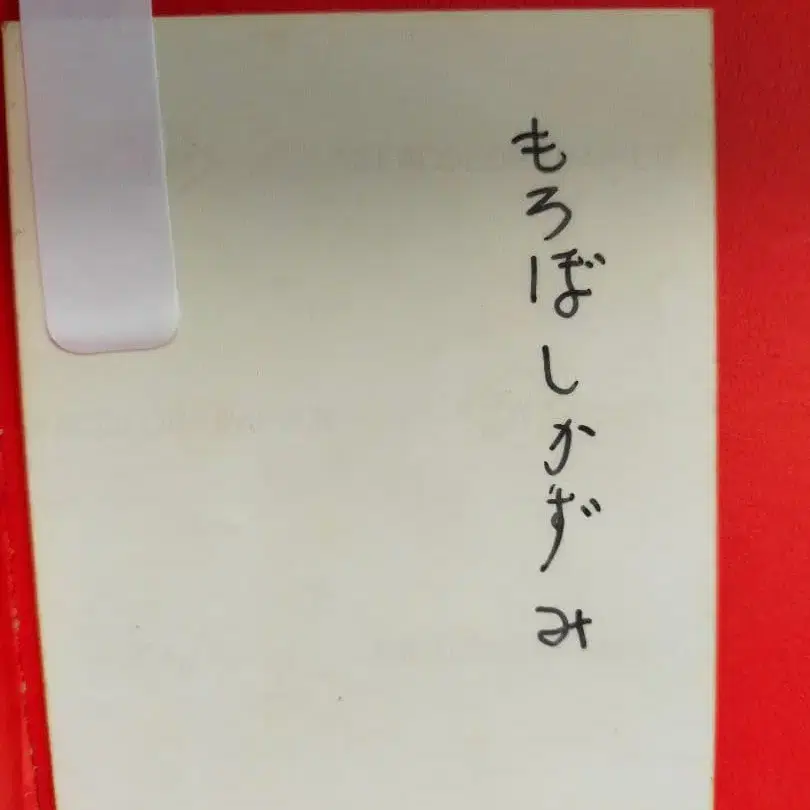 もろぼしかずみ